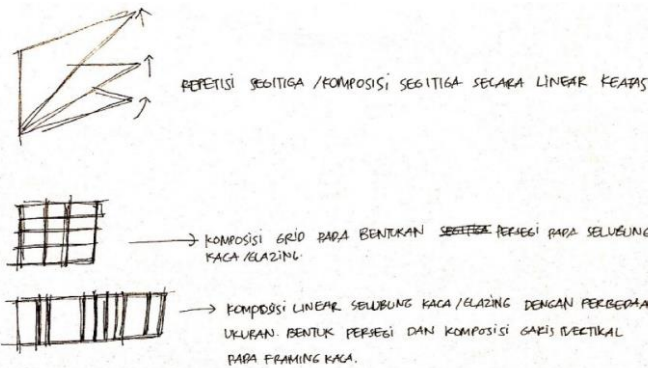 REPETISI SEGITIGA / KOMPOSISI SEGITIGA SECARA LINEAR KEATAS
KOMPOSISI GRID PADA BENTUKAN SEGITIGA PERSEGI PADA SELUBUNG
KACA / GLAZING.
KOMPOSISI LINEAR SELUBUNG KACA / GLAZING DENGAN PERBEDAA
UKURAN. BENTUK PERSEGI DAN KOMPOSISI GARIS VERTIKAL
PADA FRAMING KACA.